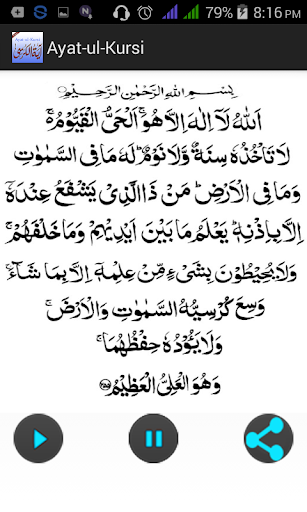 79%
8:16 PM
Ayat-ul-Kursi
بِسْمِ اللهِ الرَّحْمٰنِ الرَّحِيْمِ
اَللهُ لَآ اِلٰهَ اِلَّا هُوَ ۚ اَلْحَيُّ الْقَيُّوْمُ ۚ
لَا تَاْخُذُهٗ سِنَةٌ وَّلَا نَوْمٌ ؕ لَهٗ مَا فِي السَّمٰوٰتِ
وَمَا فِي الْاَرْضِ ؕ مَنْ ذَا الَّذِيْ يَشْفَعُ عِنْدَهٗٓ
اِلَّا بِاِذْنِهٖ ؕ يَعْلَمُ مَا بَيْنَ اَيْدِيْهِمْ وَمَا خَلْفَهُمْ ۚ
وَلَا يُحِيْطُوْنَ بِشَيْءٍ مِّنْ عِلْمِهٖٓ اِلَّا بِمَا شَآءَ ۚ
وَسِعَ كُرْسِيُّهُ السَّمٰوٰتِ وَالْاَرْضَ ۚ
وَلَا يَـُٔوْدُهٗ حِفْظُهُمَا ۚ
وَهُوَ الْعَلِيُّ الْعَظِيْمُ